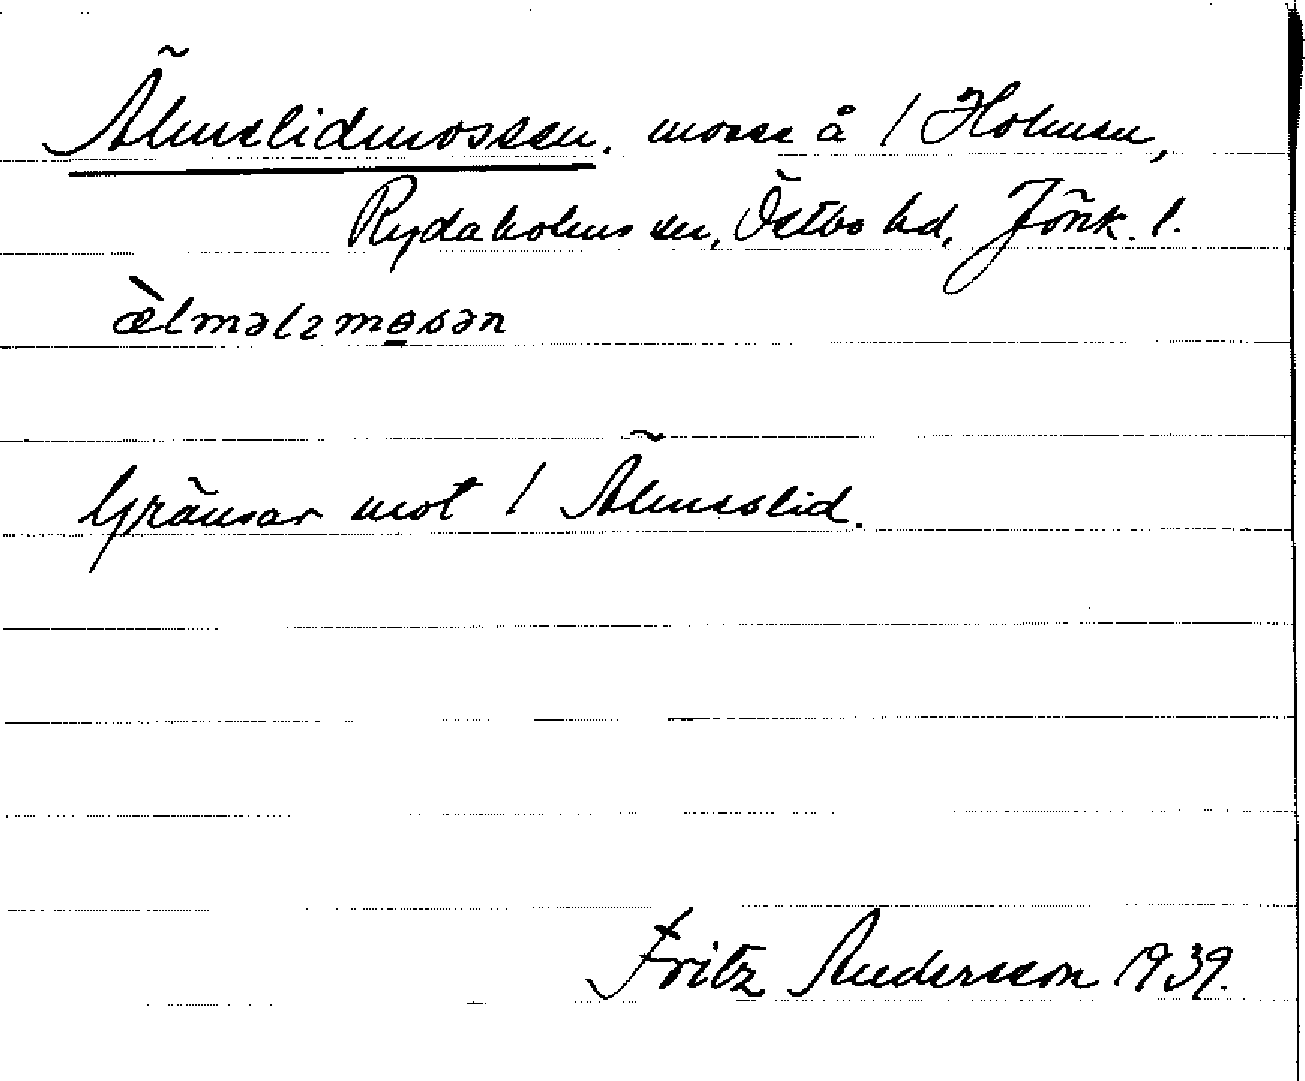 Älmslidmossen. mosse å / Holmen,
Rydaholms sn, Östbo hd, Jönk. l.
æ̀lməlsmɵsən
Gränsar mot / Älmslid.
Fritz Andersson 1939.